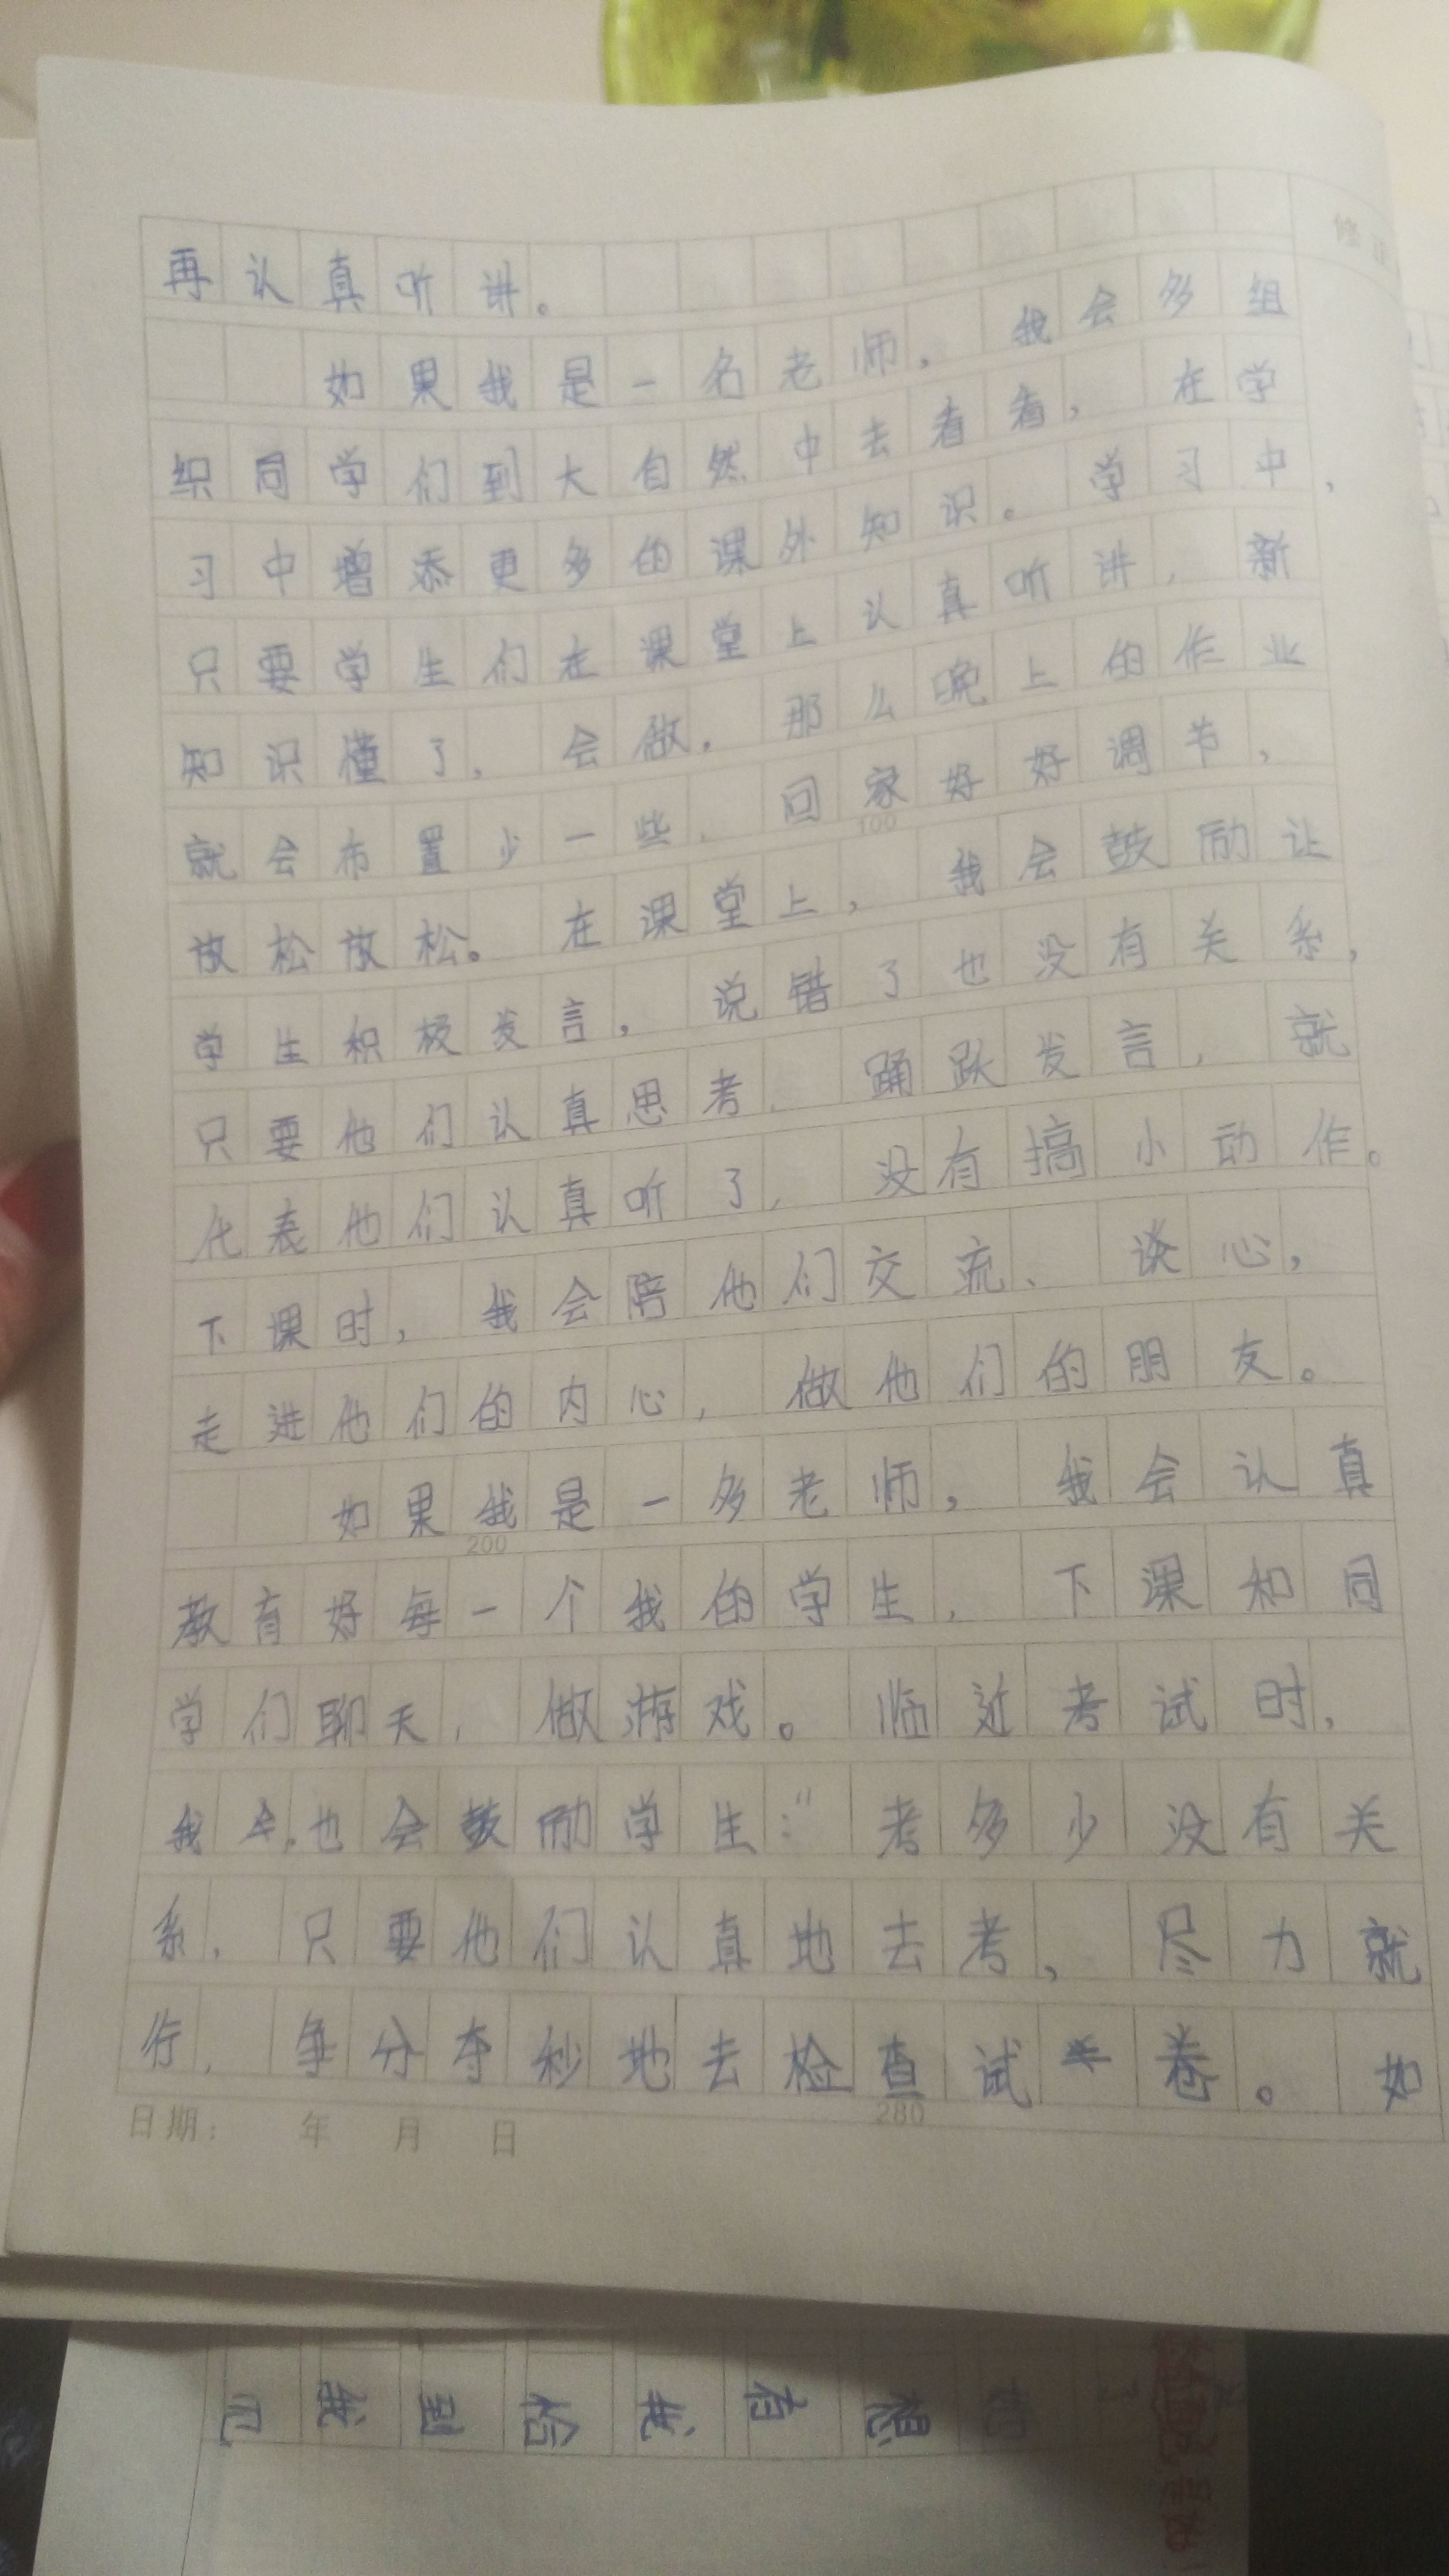 修正
再认真听讲。
如果我是一名老师，我会多组
织同学们到大自然中去看看，在学
习中增添更多的课外知识。学习中，
只要学生们在课堂上认真听讲，新
知识懂了，会做，那么晚上的作业
就会布置少一些，回家好好调节，
100
放松放松。在课堂上，我会鼓励让
学生积极发言，说错了也没有关系，
只要他们认真思考，踊跃发言，就
代表他们认真听了，没有搞小动作。
下课时，我会陪他们交流、谈心，
走进他们的内心，做他们的朋友。
如果我是一多老师，我会认真
200
教育好每一个我的学生，下课和同
学们聊天，做游戏。临近考试时，
我也会鼓励学生：“考多少没有关
系，只要他们认真地去考，尽力就
行，争分夺秒地去检查试卷。如
280
日期： 年 月 日
见我到给我有想